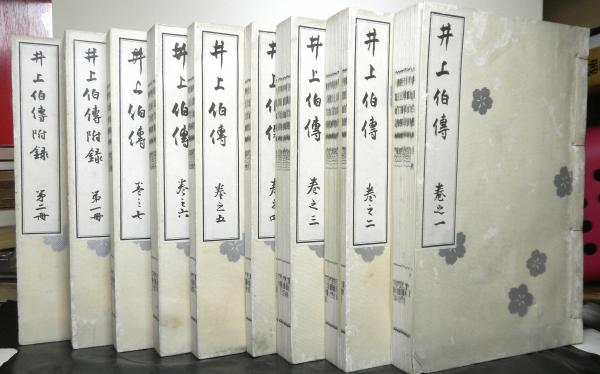 井上伯傳 卷之一
井上伯傳 卷之二
井上伯傳 卷之三
井上伯傳 卷之四
井上伯傳 卷之五
井上伯傳 卷之六
井上伯傳 卷之七
井上伯傳附録 第一冊
井上伯傳附録 第二冊